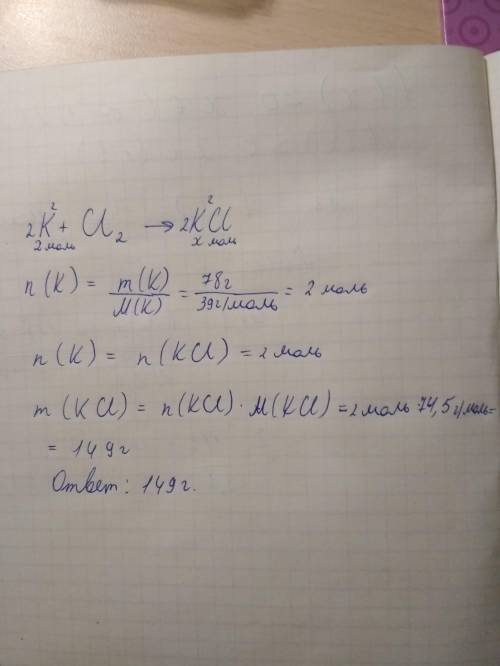 2 2
2K + Cl₂ → 2KCl
2 моль x моль
n(K) = m(K)/M(K) = 78г/39г/моль = 2 моль
n(K) = n(KCl) = 2 моль
m(KCl) = n(KCl) · M(KCl) = 2 моль 74,5 г/моль =
= 149г
Ответ: 149г.